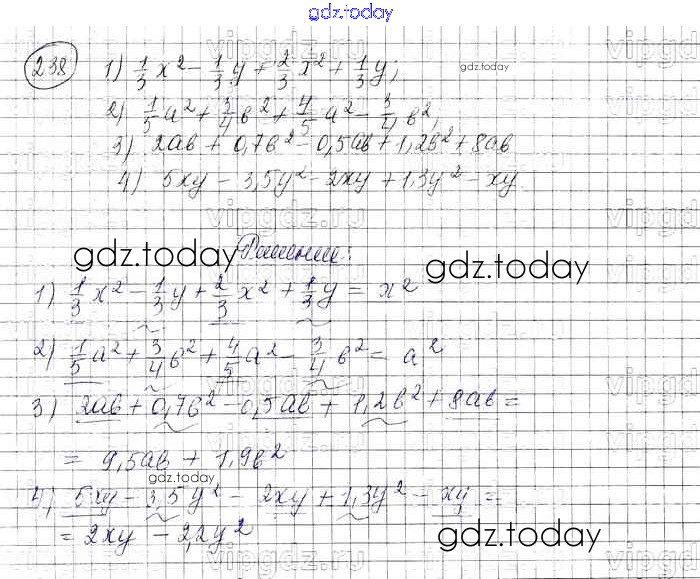 gdz.today
238 1) 1/3 x² - 1/3 y + 2/3 x² + 1/3 y;
gdz.today
2) 1/5 a² + 3/4 b² + 4/5 a² - 3/4 b²,
3) 2ab + 0,7b² - 0,5ab + 1,2b² + 8ab
4) 5xy - 3,5y² - 2xy + 1,3y² - xy.
Решение:
gdz.today
gdz.today
1) 1/3 x² - 1/3 y + 2/3 x² + 1/3 y = x²
2) 1/5 a² + 3/4 b² + 4/5 a² - 3/4 b² = a²
3) 2ab + 0,7b² - 0,5ab + 1,2b² + 8ab =
= 9,5ab + 1,9b²
gdz.today
4) 5xy - 3,5y² - 2xy + 1,3y² - xy =
= 2xy - 2,2y²
gdz.today
vipgdz.ru